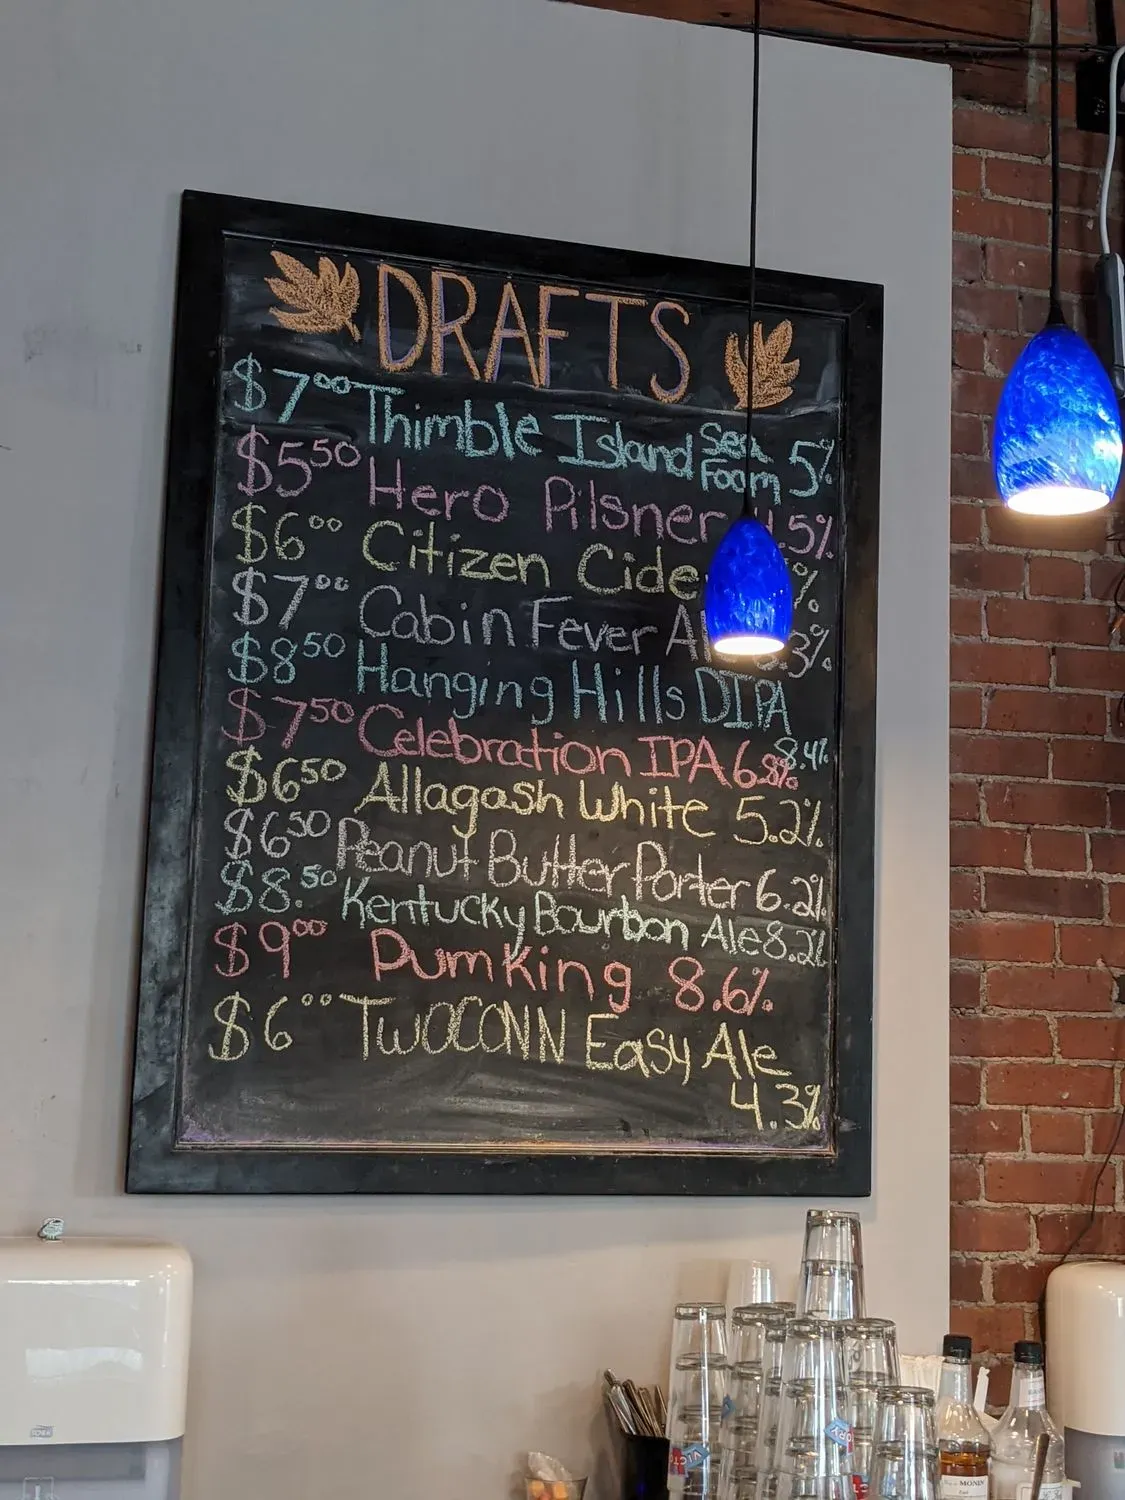 DRAFTS
$7.00 Thimble Island Sea Foam 5%
$5.50 Hero Pilsner .5%
$6.00 Citizen Cider %
$7.00 Cabin Fever .3%
$8.50 Hanging Hills DIPA
8.4%
$7.50 Celebration IPA 6.8%
$6.50 Allagash White 5.2%
$6.50 Peanut Butter Porter 6.2%
$8.50 Kentucky Bourbon Ale 8.2%
$9.00 Pumking 8.6%
$6.00 TWOCONN Easy Ale
4.3%
MONIN